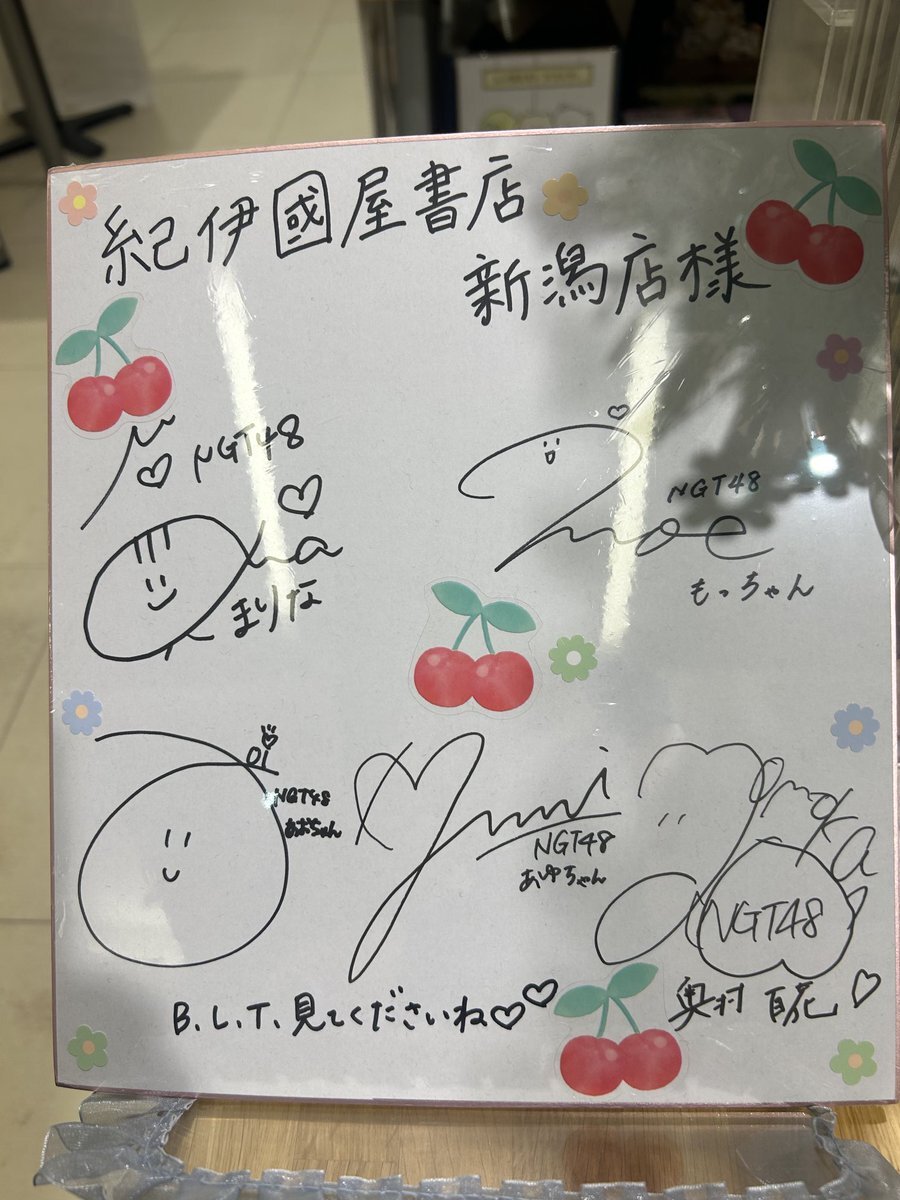 紀伊國屋書店
新潟店様
NGT48
まりな
NGT48
moe
もっちゃん
NGT48
あおちゃん
NGT48
あゆちゃん
NGT48
奥村 百花
B.L.T.見てくださいね